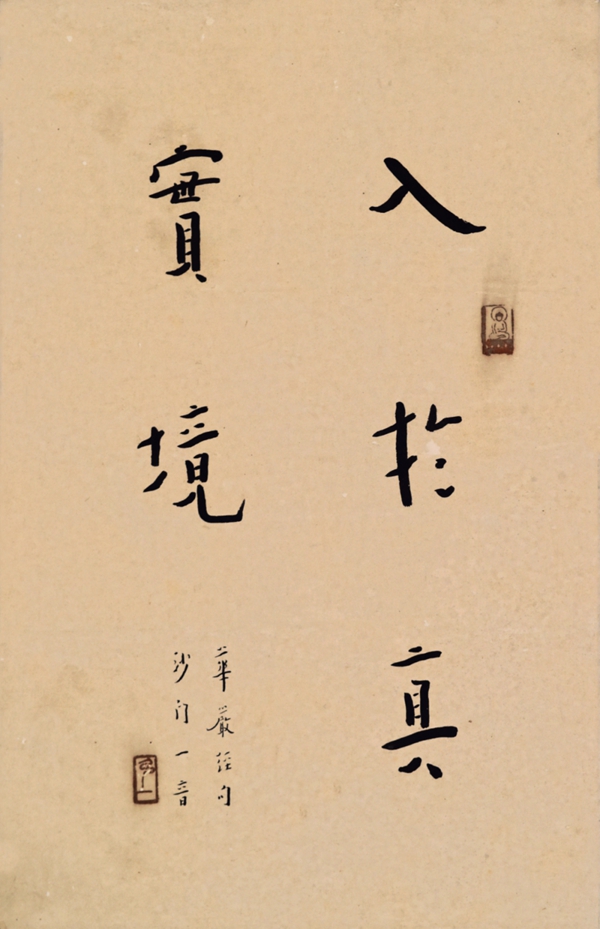 入於真
實境
華嚴經句
沙門一音
弘一